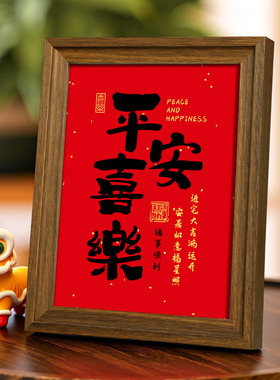 平安喜樂
PEACE
AND
HAPPINESS
诸事顺利
进宅大吉鸿运开
安居如意福星照